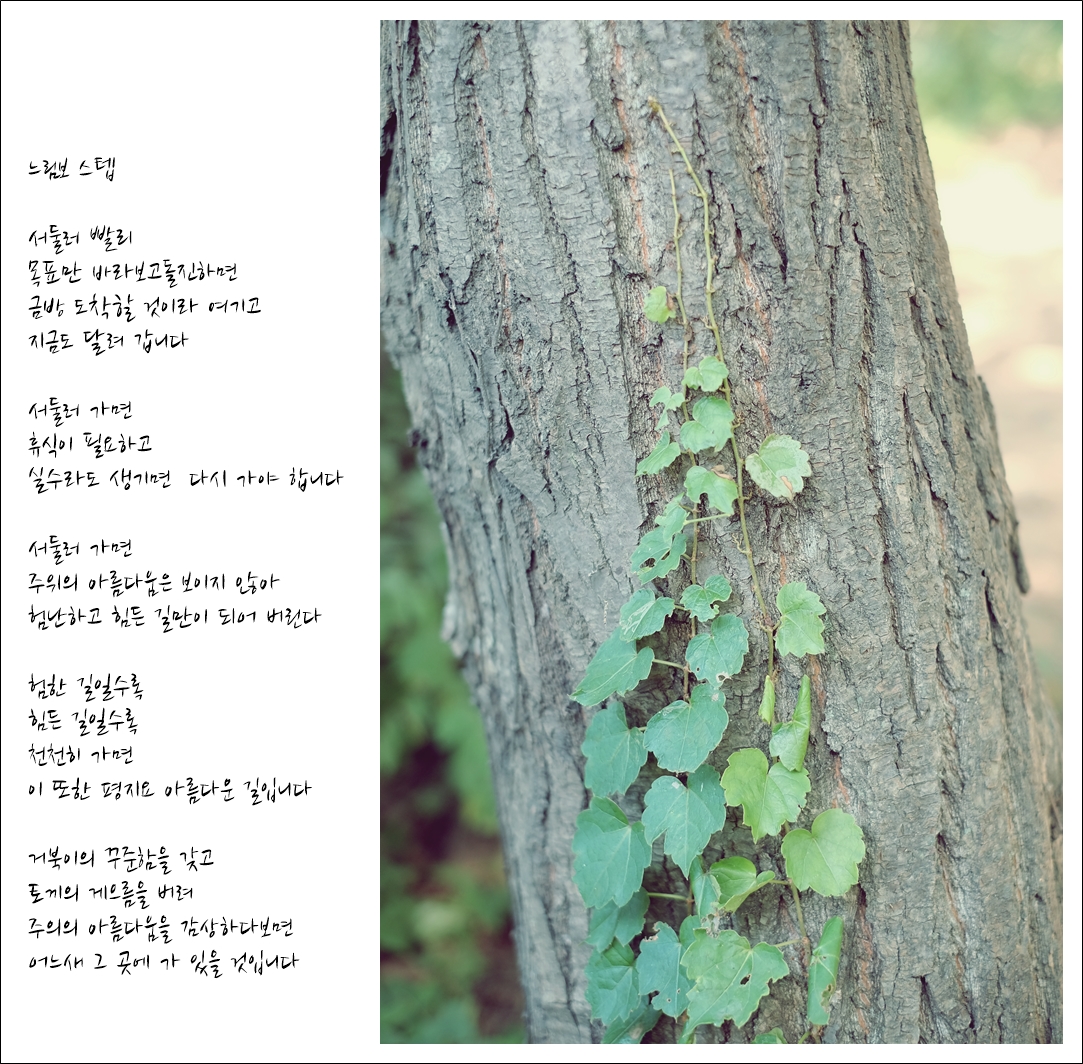 느림보 스텝
서둘러 빨리
목표만 바라보고돌진하면
금방 도착할 것이라 여기고
지금도 달려 갑니다
서둘러 가면
휴식이 필요하고
실수라도 생기면 다시 가야 합니다
서둘러 가면
주위의 아름다움은 보이지 않아
험난하고 힘든 길만이 되어 버린다
험한 길일수록
힘든 길일수록
천천히 가면
이 또한 평지요 아름다운 길입니다
거북이의 꾸준함을 갖고
토끼의 게으름을 버려
주의의 아름다움을 감상하다보면
어느새 그 곳에 가 있을 것입니다